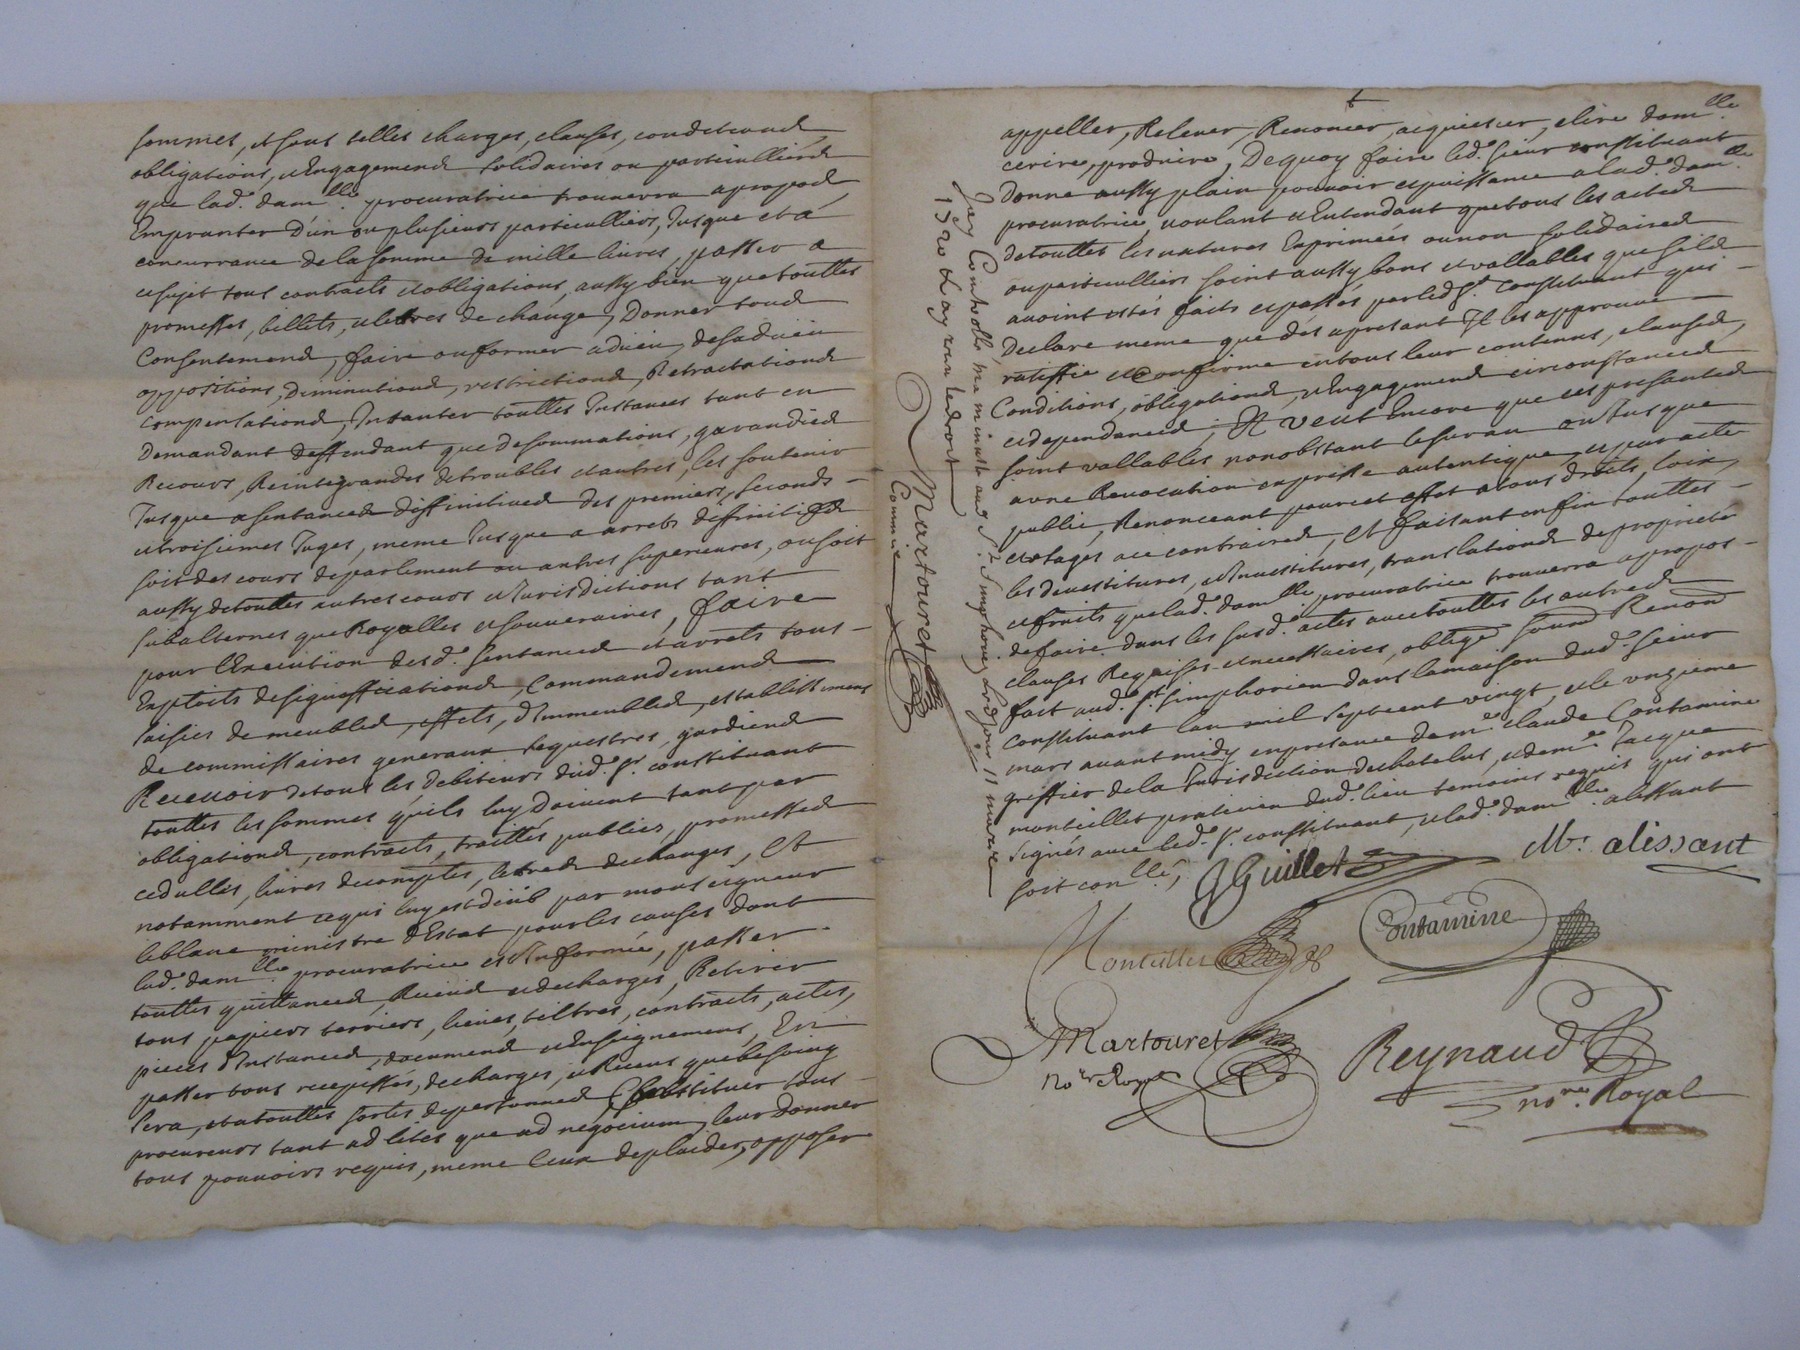 sommes, et sous telles charges, clauses, conditions,
obligations, et Engagemens solidaires ou particulliers
que lad.e dam.lle procuratrice trouverra a propos
Emprunter d'ún ou plusieurs particulliers, Jusque et á
concurrance de la somme de mille livres, passer a
ce sujet tous contracts et obligations, aussy bien que touttes
promesses, billets, et lettres de change, Donner tous
Consentemens, faire ou former adveu, desadveu
oppositions, Diminutions, restrictions, Retractations
compensations, Intanter touttes Instances tant en
Demandant deffendant que de sommations, garandies
Recours, Reintegrandes de troubles et autres, les soutenir
Jusque a sentances diffinitives des premiers, seconds
et troisiemes Juges, meme Jusque a arrets diffinitifs
soit des cours de parlement ou autres superieures, ou soit
aussy de touttes autres cours et Jurisdictions tant
subalternes que Royalles et souveraines, faire
pour l'Execution desd.e sentances et arrets tous
Exploits de signiffications, Commandemens
saisies de meubles, effets, d'Immeubles, establissemens
de commissaires generaux sequestres, gardiens
Recevoir de tous les debiteurs dud.e sr. constituant
touttes les sommes qu'ils luy doivent tant par
obligations, contracts, traittés publics, promesses
cedulles, livres de comptes, lettres de changes, Et
notamment ce qui luy est düb par monseigneur
leblanc ministre d'Estat pour les causes dont
lad.e dam.lle procuratrice est Informée, passer
touttes quittances, Receus et decharges, Retirer
tous papiers terriers, lieves, tiltres, contracts, actes,
pieces d'Instances, documens et Enseignemens, En
passer tous recepissés, decharges, et Receus que besoing
sera, et a touttes sortes de personnes Constituer tous
procureurs tant ad lites que ad negocium, leur donner
tous pouvoirs requis, meme ceux de plaider, opposer
Jay Controllé ma minute aud St Simphorien Led jour 11 mars
1720 & Lay receu le droit
Martouret
Commis
appeller, Relever, Renoncer, acquiescer, elire dom.lle
ecrire, produire, De quoy faire led.e sieur constituant
Donne aussy plain pouvoir et puissance a lad.e dam.lle
procuratrice, voulant et Entendant que tous les actes
de touttes les natures Exprimées ou non solidaires
ou particulliers soint aussy bons et vallables que s'ils
avoint estés faits et passés par led sr. constituant qui
Declare meme que des apresant Il les approuve
ratiffie et Confirme en tous leur contenus, clauses,
Conditions, obligations, et Engagemens circonstances
et dependances, Et veut Encore que ces presantes
soint vallables nonobstant le suran ou Jusque
a une Revocation expresse autentique et par acte
public, Renonceant pour cet effet a tous droits, loix,
et utages a ce contraires, Et faisant enfin touttes
les devestitures, et Investitures, translations de proprieté
et fruits que lad.e dam.lle procuratrice trouverra a propos
de faire dans les susd.e actes avec touttes les autres
clauses Requises et necessaires, oblige soums Renon
fait aud.e st. simphorien dans la maison dud.e sieur
constituant l'an mil septcent vingt, et le unzieme
mars avant midy en presance de me. claude Contamine
greffier de la Jurisdiction de chatelus, et de me. Jacque
monteillet praticien dud.e lieu temoins requis qui ont
signés avec led.e sr. constituant, et lad.e dam.lle alissant
soit con.lle,
JGuillet
Mr. alissant
Monteillet
Contamine
Martouret
no.re Royal
Reynaud
no.re Royal